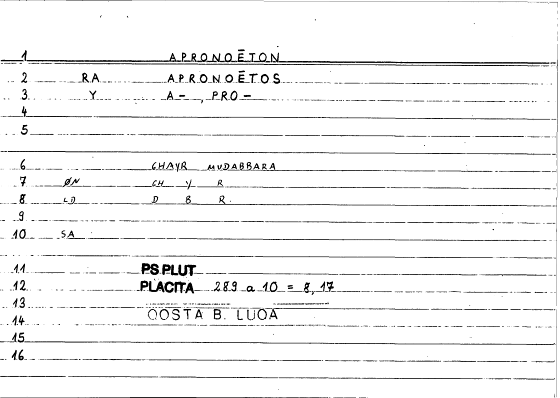 1 APRONOĒTON
2 RA APRONOĒTOS
3 Y A-, PRO-
4
5
6 CHAYR MUDABBARA
7 ØN CH Y R
8 LD D B R
9
10 SA
11 PS.PLUT
12 PLACITA 289 a 10 = 8, 17
13
14 QOSTA B. LUQA
15
16